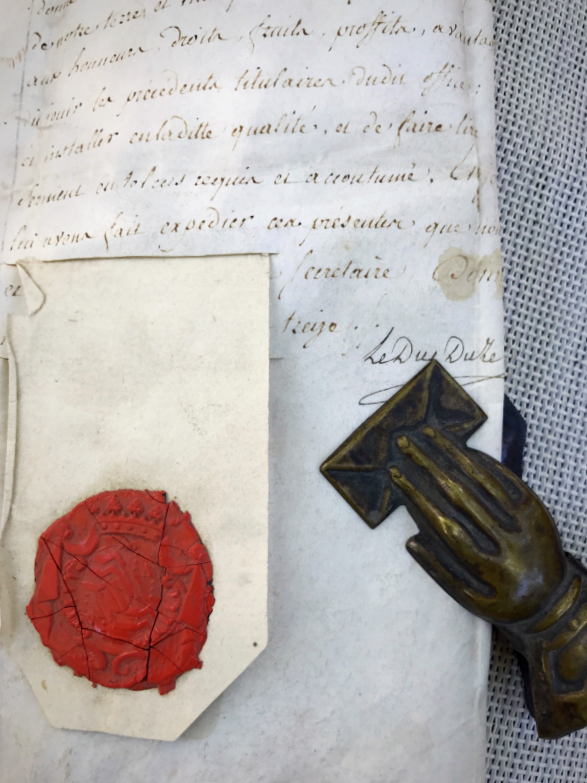 de notre terre, et
aux honneurs, droits fruits, proffits, avanta
du jouir les précédents titulaires dudit offic
et installer en ladille qualité, et de faire
Serment en tel cas requis et accoutumé. En
lui avons fait expedier ces présentes que
et secretaire Donn
treize
Le Duc De